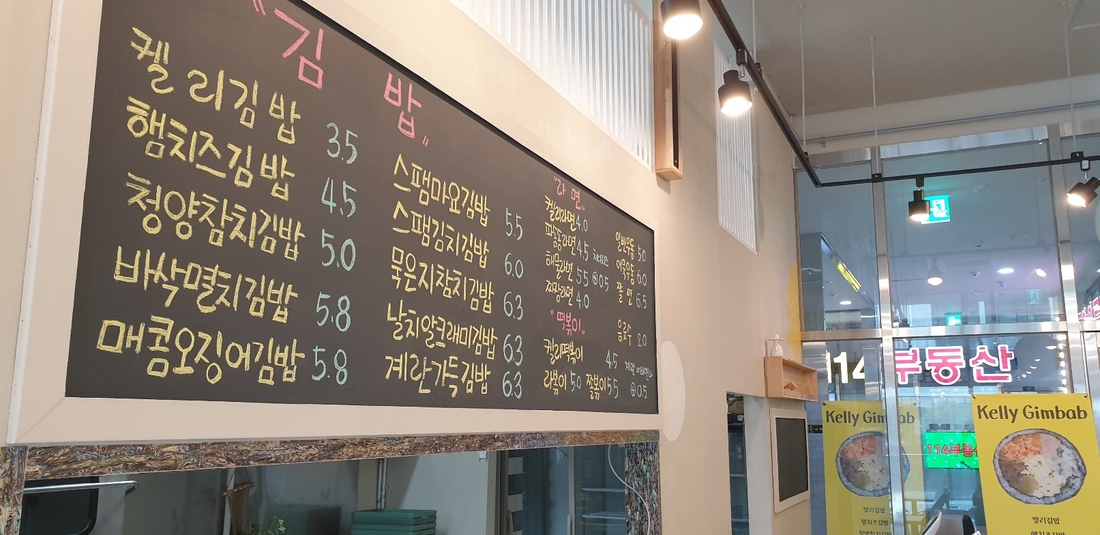 "김 밥"
켈리김밥 3.5
햄치즈김밥 4.5
청양참치김밥 5.0
바삭멸치김밥 5.8
매콤오징어김밥 5.8
스팸마요김밥 5.5
스팸김치김밥 6.0
묵은지참치김밥 6.3
날치알크래미김밥 6.3
계란가득김밥 6.3
"라 면"
켈리라면 4.0
해물라면 5.5 ⊕0.5
짜장라면 4.0
"떡볶이"
켈리떡볶이 4.5
라볶이 5.0 쫄볶이 5.5 ⊕0.5
5.0
6.0
쫄면 6.5
음료수 2.0
114 부동산
Kelly Gimbab
켈리김밥
햄치즈김밥
114부동
Kelly Gimbab
켈리김밥
햄치즈김밥